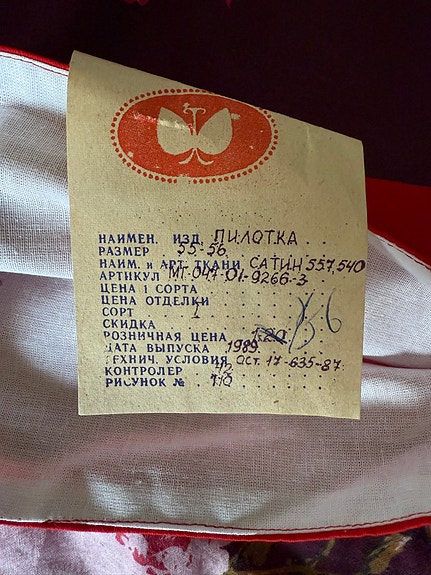 НАИМЕН. ИЗД. ПИЛОТКА
РАЗМЕР 55-56
НАИМ. и АРТ. ТКАНИ САТИН 557,540
АРТИКУЛ МГ-047-01-9266-3
ЦЕНА 1 СОРТА
ЦЕНА ОТДЕЛКИ
СОРТ 1
СКИДКА
РОЗНИЧНАЯ ЦЕНА
ДАТА ВЫПУСКА 1989.
ТЕХНИЧ. УСЛОВИЯ ОСТ. 17-635-87.
КОНТРОЛЕР 42
РИСУНОК №